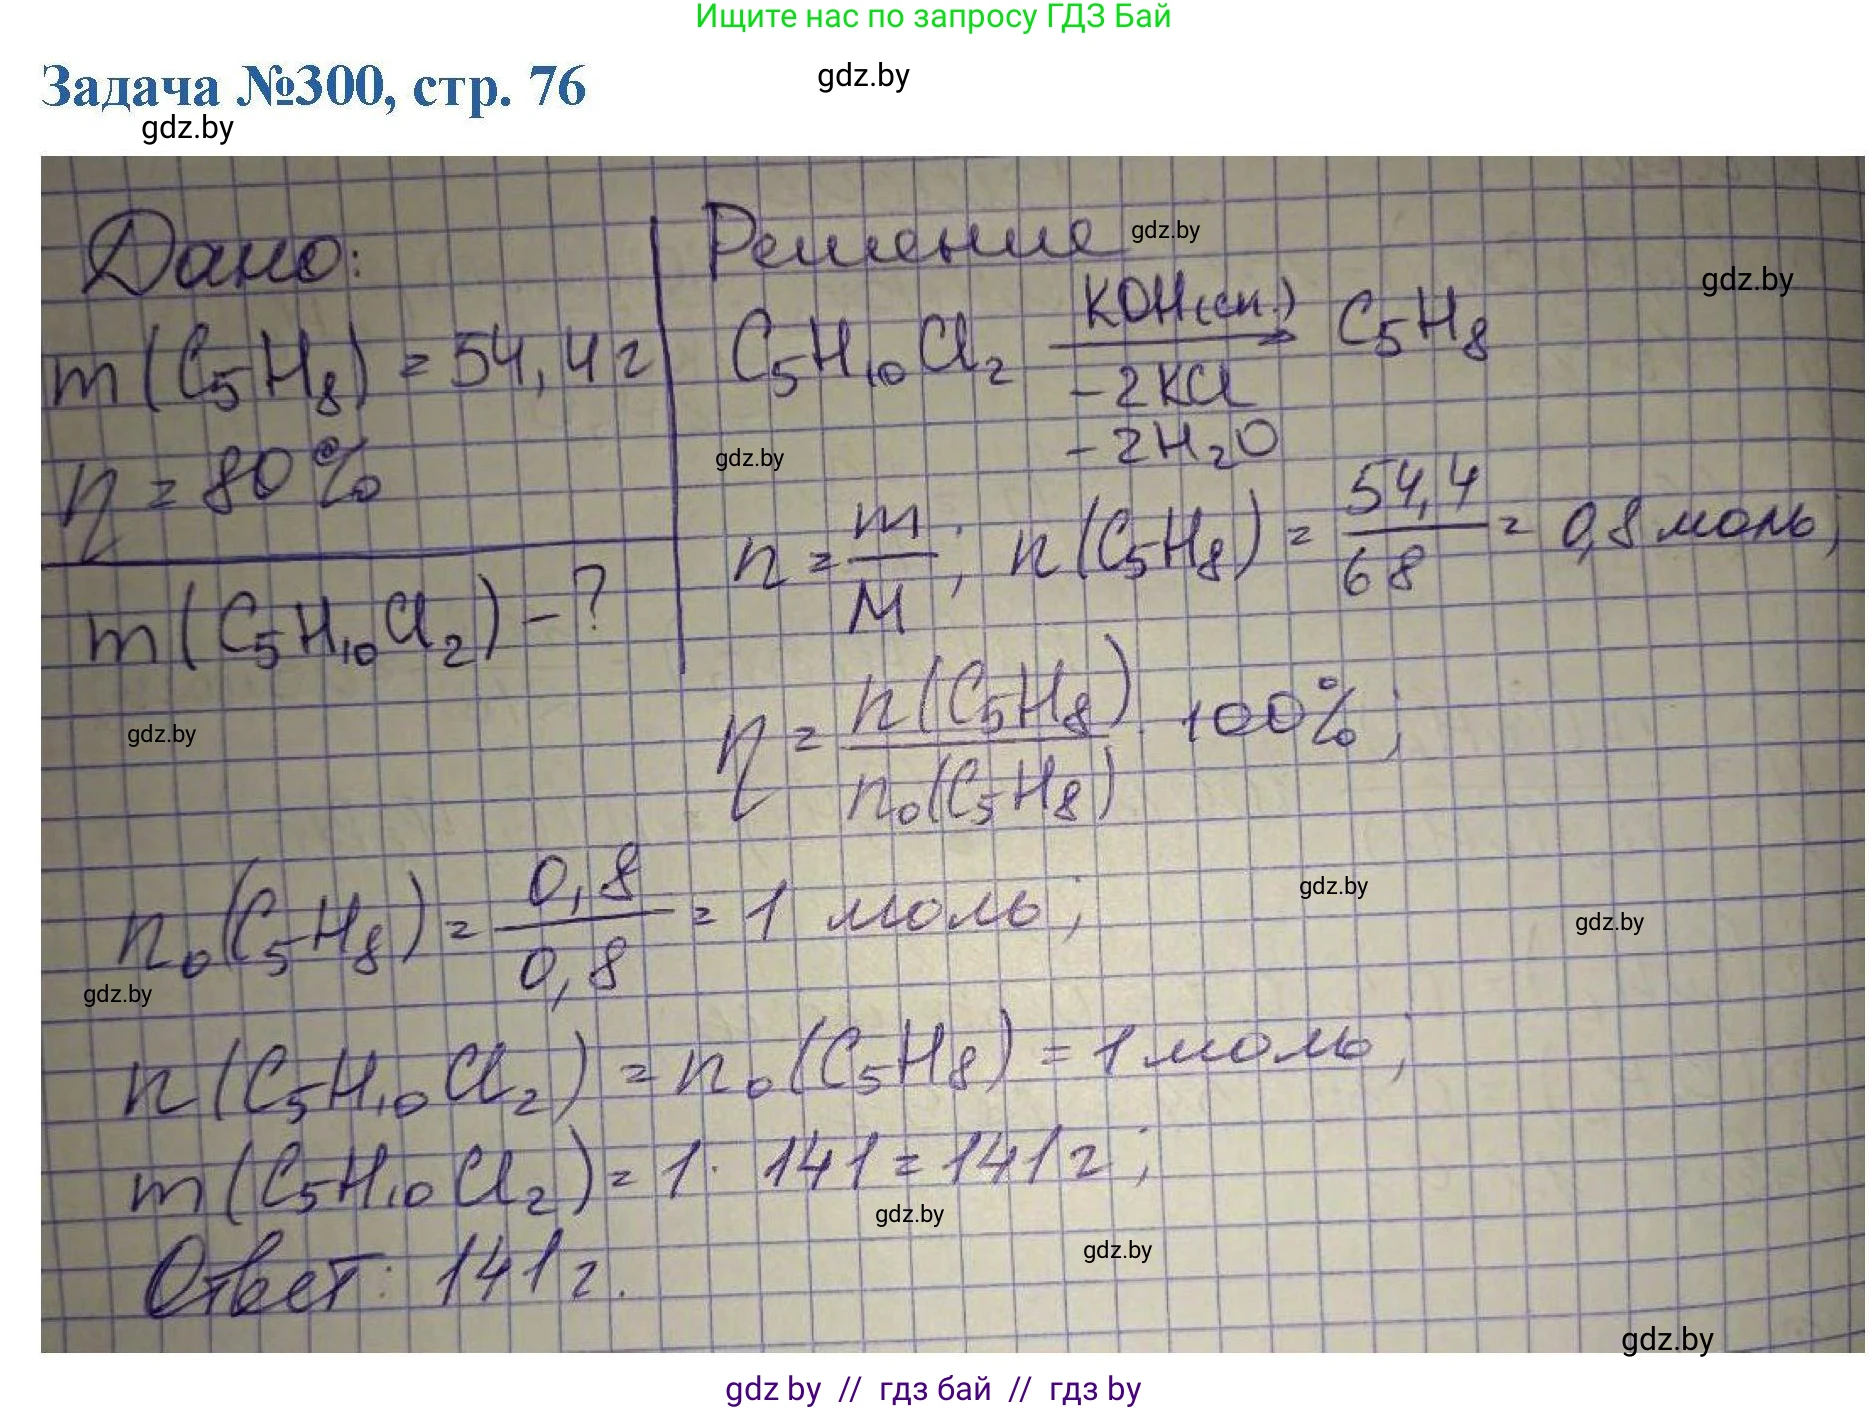 Ищите нас по запросу ГДЗ Бай
Задача №300, стр. 76
gdz.by
gdz.by
Дано:
m(C₅H₈) = 54,4 г
η = 80%
m(C₅H₁₀Cl₂) - ?
Решение
gdz.by
gdz.by
C₅H₁₀Cl₂ KOH(сп.) → C₅H₈
-2KCl
-2H₂O
gdz.by
n = m/M; n(C₅H₈) = 54,4/68 = 0,8 моль;
gdz.by
η = n(C₅H₈)/n₀(C₅H₈) · 100%;
n₀(C₅H₈) = 0,8/0,8 = 1 моль;
gdz.by
gdz.by
gdz.by
n(C₅H₁₀Cl₂) = n₀(C₅H₈) = 1 моль;
m(C₅H₁₀Cl₂) = 1 · 141 = 141 г;
gdz.by
gdz.by
Ответ: 141 г.
gdz.by
gdz by // гдз бай // гдз by